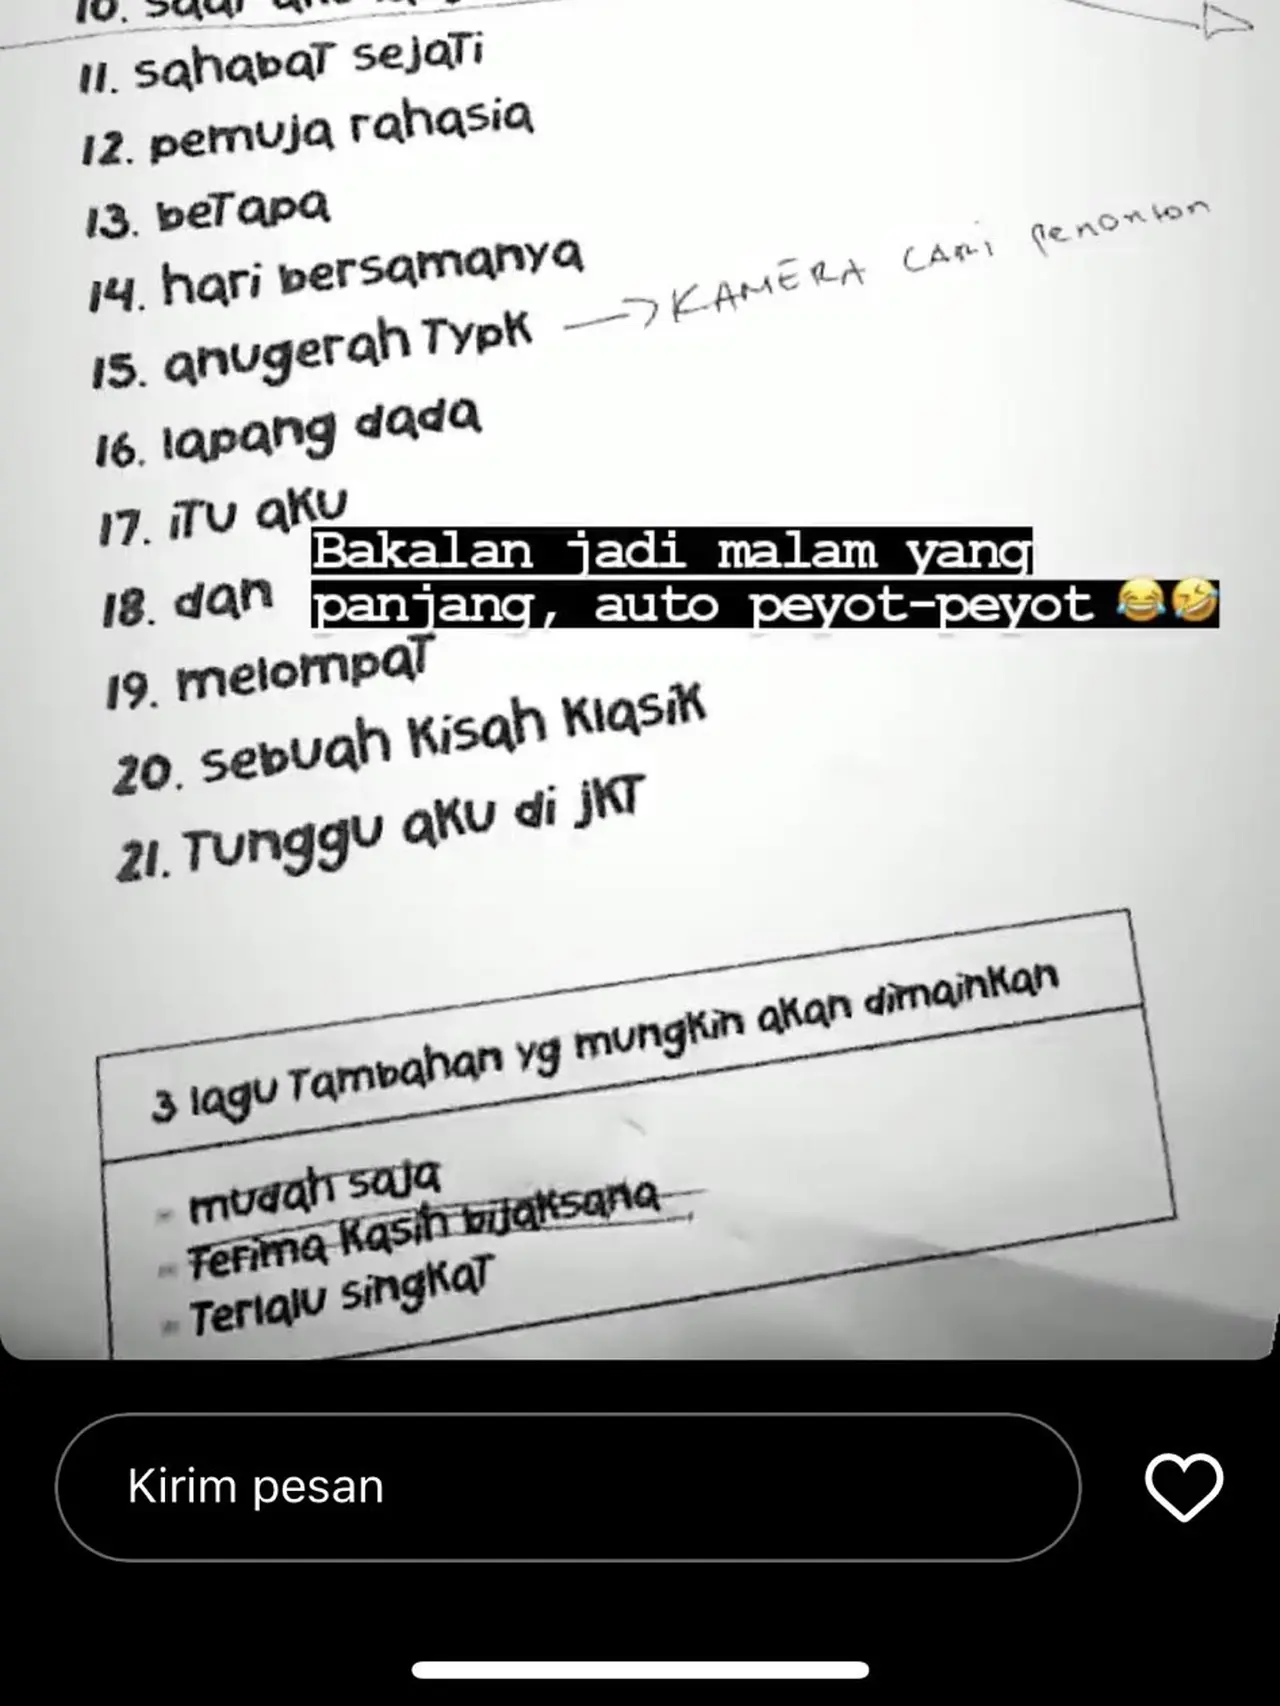 11. sahabat sejati
12. pemuja rahasia
13. betapa
14. hari bersamanya
15. anugerah Typk → KAMERA CARi penonton
16. lapang dada
17. itu aku
18. dan
Bakalan jadi malam yang
panjang, auto peyot-peyot 😂🤣
19. melompat
20. sebuah Kisah Klasik
21. Tunggu aku di jKT
3 lagu Tambahan yg mungkin akan dimainkan
- mudah saja
- Terima Kasih bijaksana
- Terlalu singkat
Kirim pesan